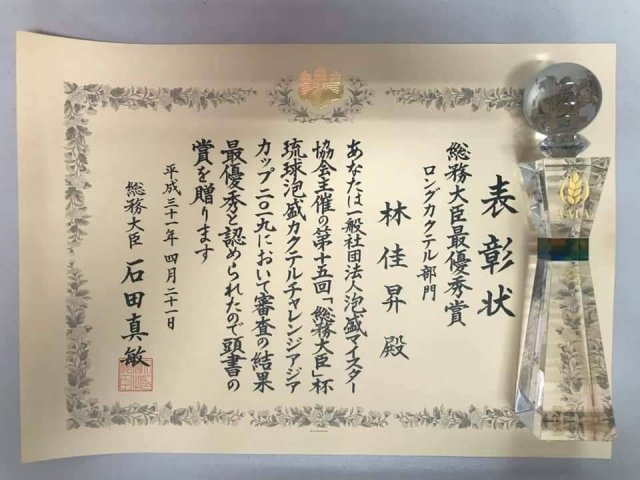 表彰状
総務大臣最優秀賞
ロングカクテル部門
林佳昇 殿
あなたは一般社団法人泡盛マイスター
協会主催の第十五回「総務大臣」杯
琉球泡盛カクテルチャレンジアジア
カップ二〇一九において審査の結果
最優秀と認められたので頭書の
賞を贈ります
平成三十一年 四月二十一日
総務大臣 石田真敏